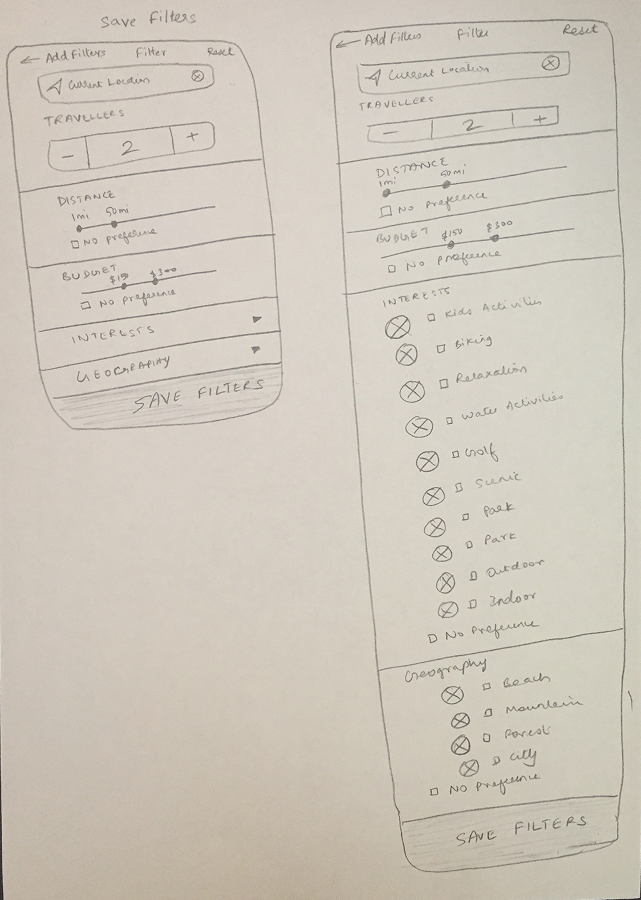 Save Filters
← Add Filters Filter Reset
Current Location
TRAVELLERS
- 2 +
DISTANCE
1mi 50mi
No preference
BUDGET
$150 $300
No preference
INTERESTS
GEOGRAPHY
SAVE FILTERS
← Add Filters Filter Reset
Current Location
TRAVELLERS
- 2 +
DISTANCE
1mi 50mi
No preference
BUDGET $150 $300
No preference
INTERESTS
Kids Activities
Biking
Relaxation
Water Activities
Golf
Scenic
Park
Park
Outdoor
Indoor
No Preference
Geography
Beach
Mountain
Forest
City
No Preference
SAVE FILTERS